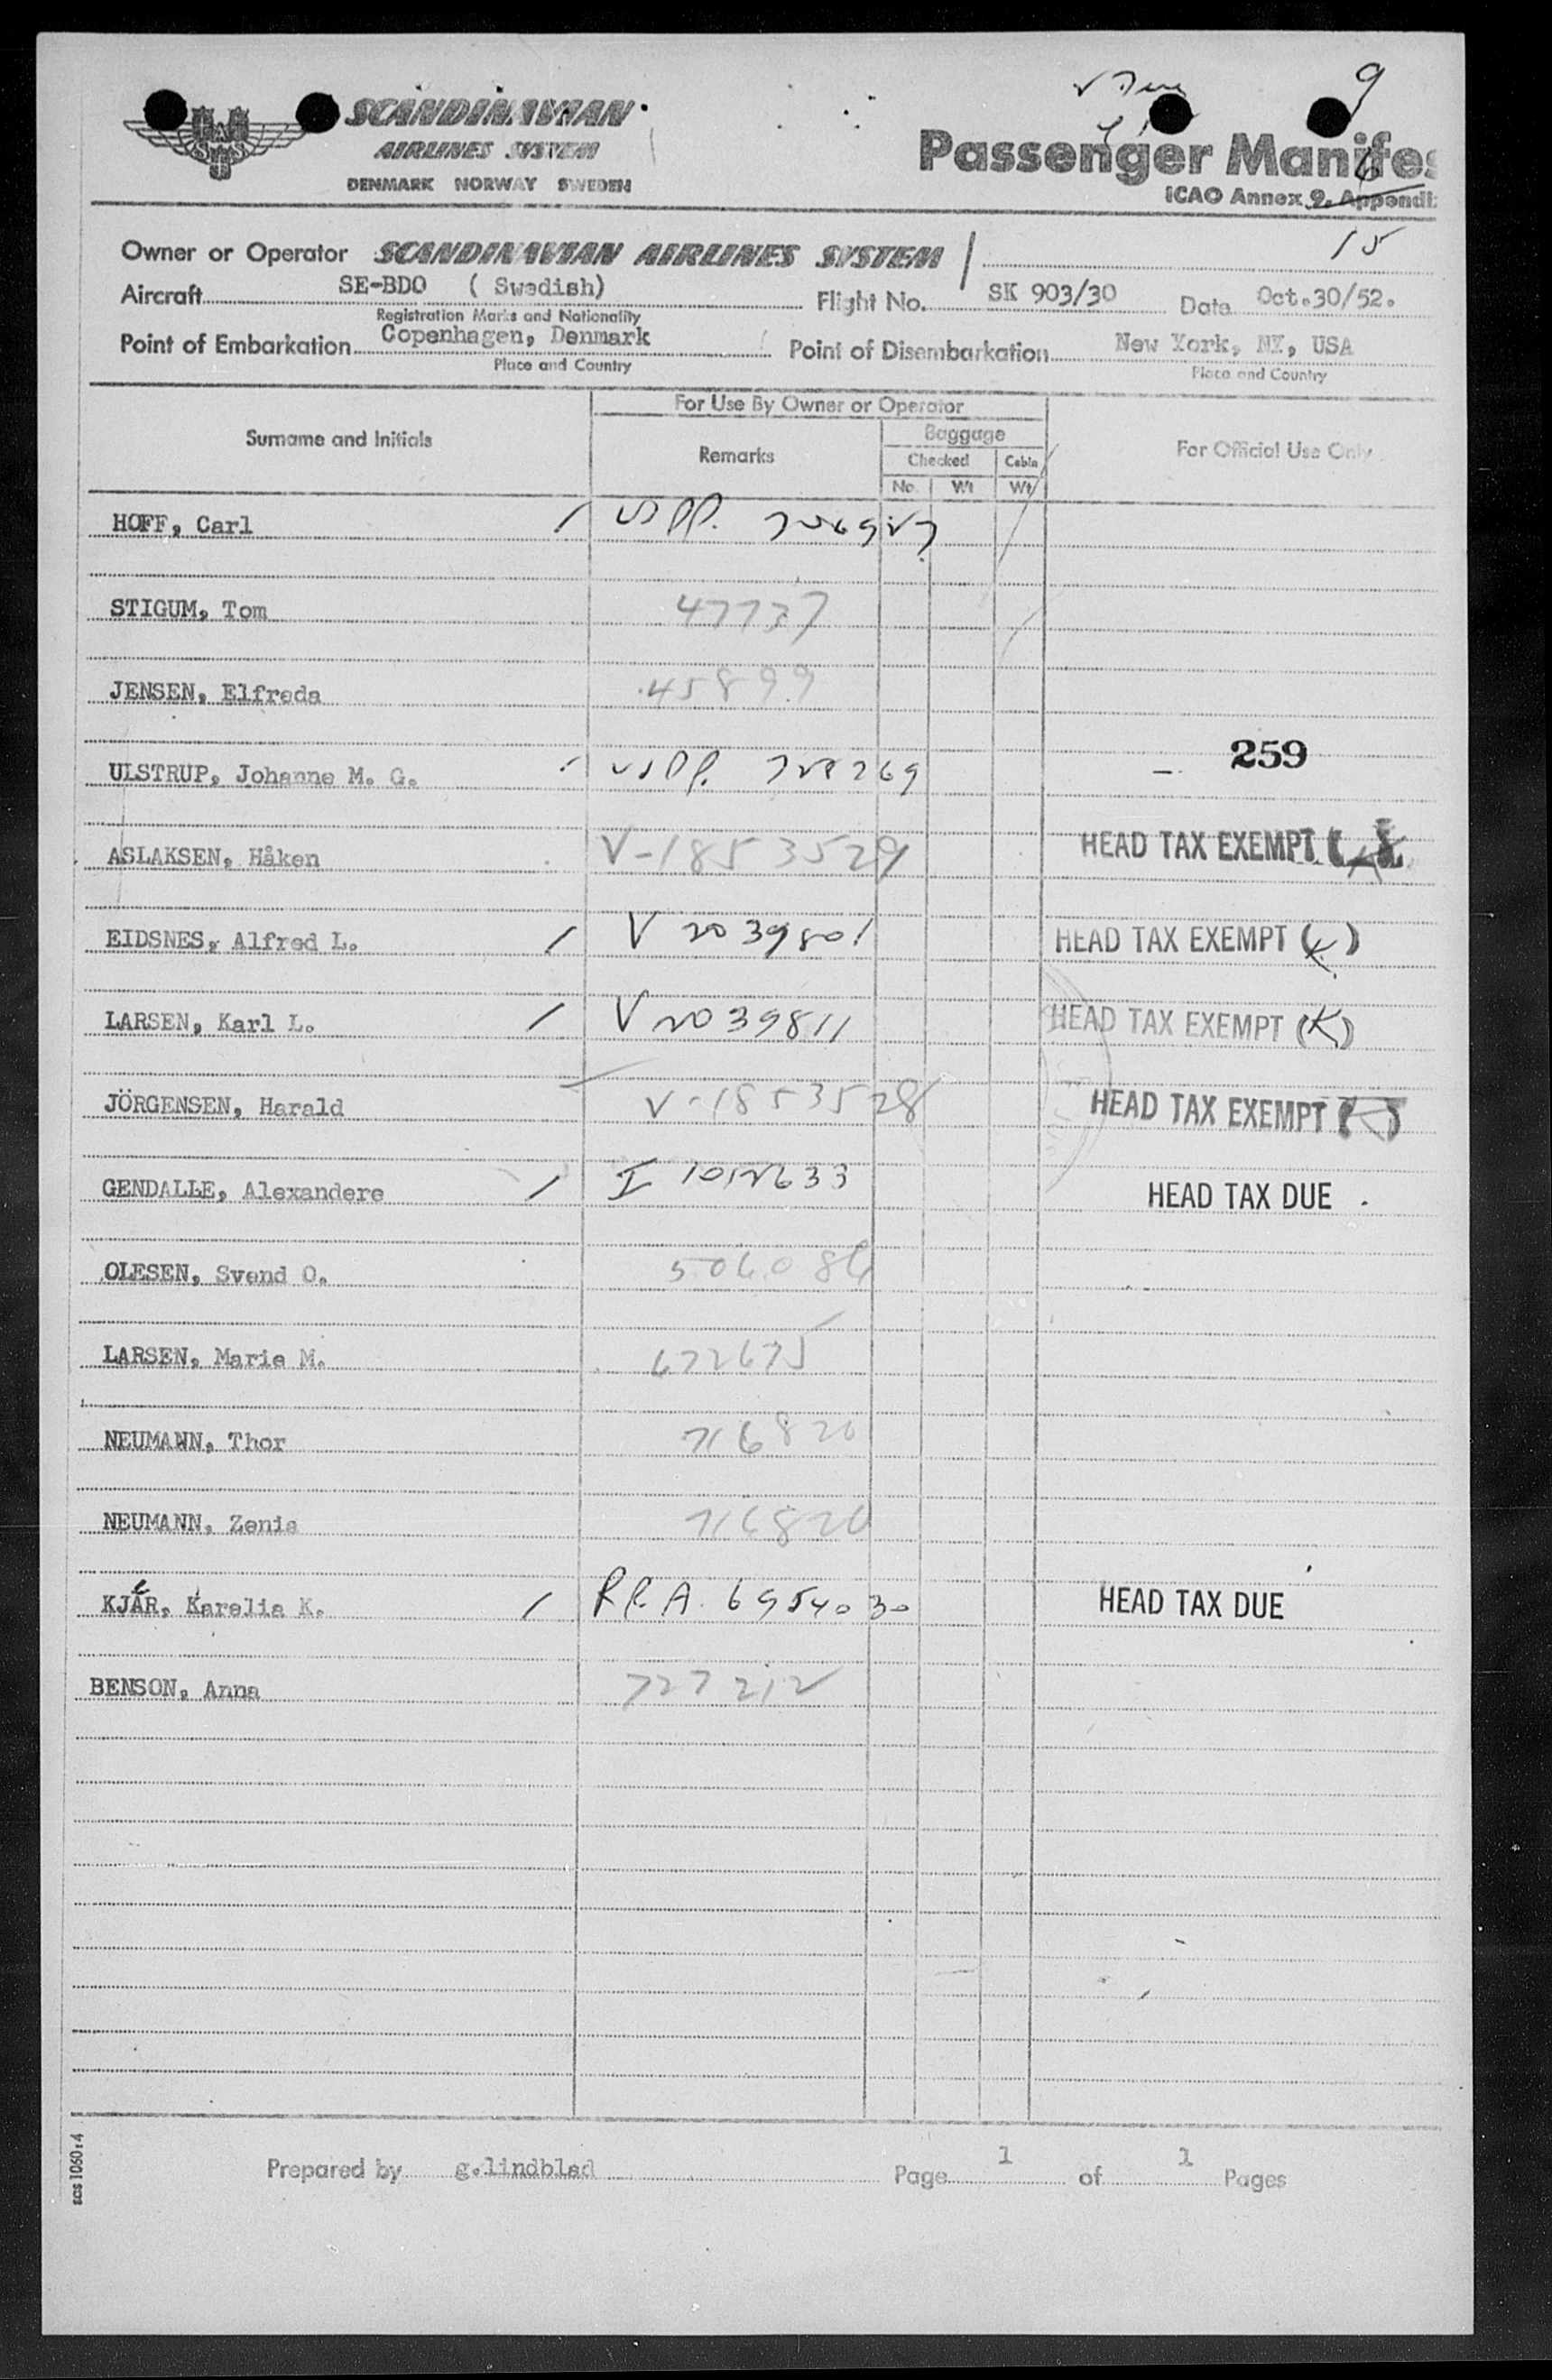 9
SCANDINAVIAN
AIRLINES SYSTEM
DENMARK NORWAY SWEDEN
Passenger Manifes
ICAO Annex 9, Appendi
15
Owner or Operator SCANDINAVIAN AIRLINES SYSTEM
Aircraft SE-BDO ( Swedish) Flight No. SK 903/30 Date Oct.30/52.
Registration Marks and Nationality
Point of Embarkation Copenhagen, Denmark Point of Disembarkation New York, NY, USA
Place and Country Place and Country
For Use By Owner or Operator
Surname and Initials Remarks Baggage For Official Use Only
Checked Cabin
No. Wt Wt
HOFF, Carl
STIGUM, Tom 47737
JENSEN, Elfreda 45899
259
ULSTRUP, Johanne M. G.
ASLAKSEN, Håken V-1853529 HEAD TAX EXEMPT
EIDSNES, Alfred L. V 2039801 HEAD TAX EXEMPT (K)
LARSEN, Karl L. V 2039811 HEAD TAX EXEMPT (K)
JÖRGENSEN, Harald V-1853528 HEAD TAX EXEMPT (K)
GENDALLE, Alexandere I 1012633 HEAD TAX DUE
OLESEN, Svend O. 506086
LARSEN, Marie M. 672675
NEUMANN, Thor 716820
NEUMANN, Zenia 716820
KJÄR, Karelia K. HEAD TAX DUE
BENSON, Anna 727212
Prepared by g.lindblad Page 1 of 1 Pages
scs 1060:4